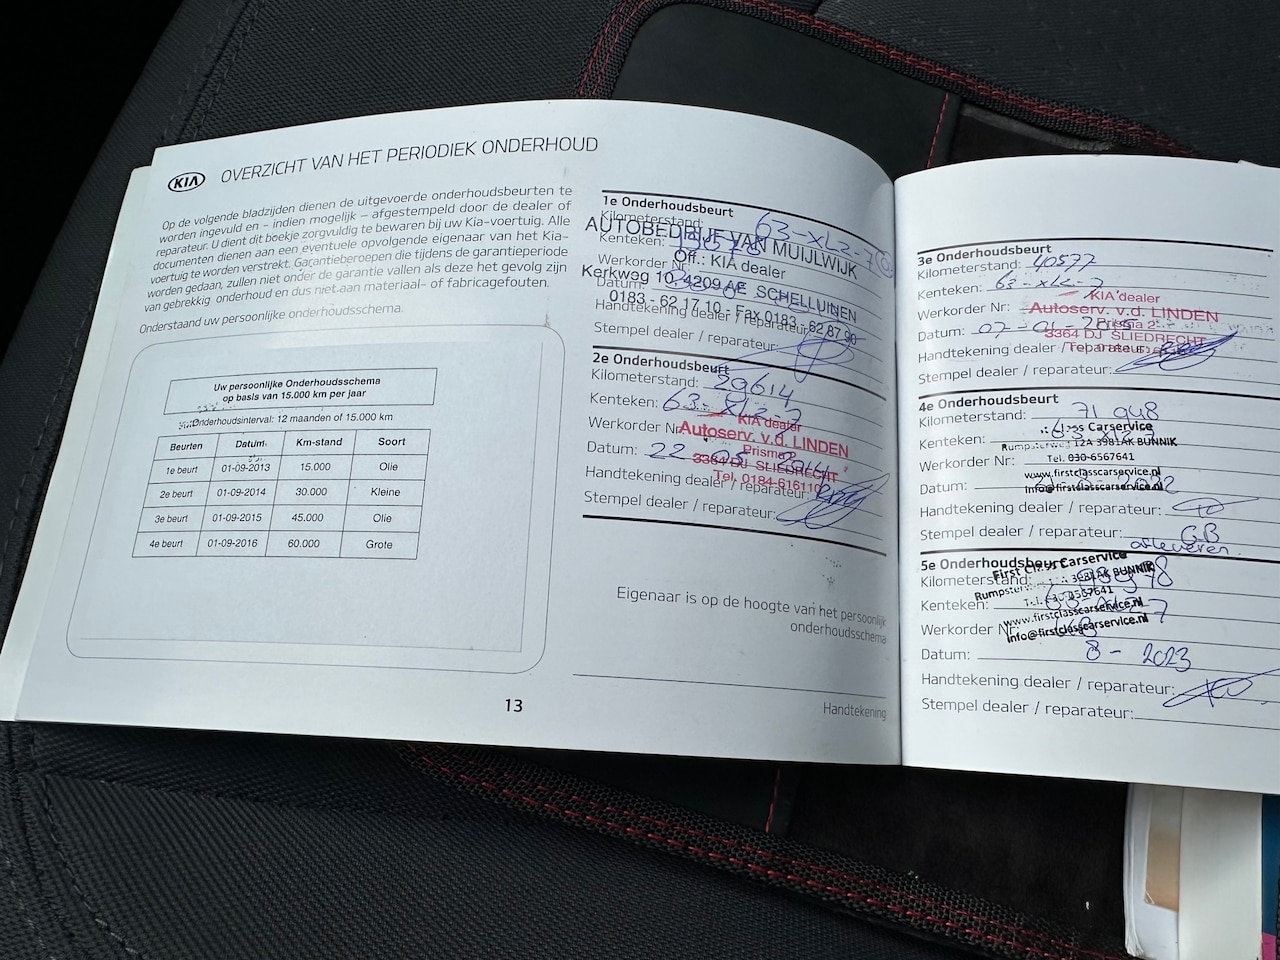 KIA OVERZICHT VAN HET PERIODIEK ONDERHOUD
Op de volgende bladzijden dienen de uitgevoerde onderhoudsbeurten te
worden ingevuld en - indien mogelijk – afgestempeld door de dealer of
reparateur. U dient dit boekje zorgvuldig te bewaren bij uw Kia-voertuig. Alle
documenten dienen aan een eventuele opvolgende eigenaar van het Kia-
voertuig te worden verstrekt. Garantieberoepen die tijdens de garantieperiode
worden gedaan, zullen niet onder de garantie vallen als deze het gevolg zijn
van gebrekkig onderhoud en dus niet aan materiaal- of fabricagefouten.
Onderstaand uw persoonlijke onderhoudsschema.
Uw persoonlijke Onderhoudsschema
op basis van 15.000 km per jaar
Onderhoudsinterval: 12 maanden of 15.000 km
Beurten Datum Km-stand Soort
1e beurt 01-09-2013 15.000 Olie
2e beurt 01-09-2014 30.000 Kleine
3e beurt 01-09-2015 45.000 Olie
4e beurt 01-09-2016 60.000 Grote
13
1e Onderhoudsbeurt
Kilometerstand: 63-XLZ-7
AUTOBEDRIJF VAN MUIJLWIJK
Kenteken:
Off.: KIA dealer
Werkorder Nr:
Kerkweg 10, 4209 AE SCHELLUINEN
Datum:
0183 - 62 17 10 - Fax 0183 - 62 87 90
Handtekening dealer / reparateur:
Stempel dealer / reparateur:
2e Onderhoudsbeurt
Kilometerstand: 29614
Kenteken: 63-XLZ-7
KIA dealer
Werkorder Nr:
Autoserv. v.d. LINDEN
Prisma
Datum: 22
3364 DJ SLIEDRECHT
Tel. 0184-616110
Handtekening dealer / reparateur:
Stempel dealer / reparateur:
Eigenaar is op de hoogte van het persoonlijk
onderhoudsschema
Handtekening
3e Onderhoudsbeurt
Kilometerstand: 40577
Kenteken: 63-XLZ-7
KIA dealer
Werkorder Nr:
Autoserv. v.d. LINDEN
Prisma 2
Datum: 07-01-
3364 DJ SLIEDRECHT
Handtekening dealer / reparateur:
Stempel dealer / reparateur:
4e Onderhoudsbeurt
Kilometerstand: 71 948
Class Carservice
Kenteken:
Rumpsterweg 12A 3981AK BUNNIK
Tel. 030-6567641
Werkorder Nr:
www.firstclasscarservice.nl
Datum:
info@firstclasscarservice.nl
Handtekening dealer / reparateur:
Stempel dealer / reparateur: GB
afleveren.
5e Onderhoudsbeurt
First Class Carservice
Kilometerstand:
3981AK BUNNIK
Kenteken:
www.firstclasscarservice.nl
Werkorder Nr:
info@firstclasscarservice.nl
Datum: 8 - 2023
Handtekening dealer / reparateur:
Stempel dealer / reparateur: